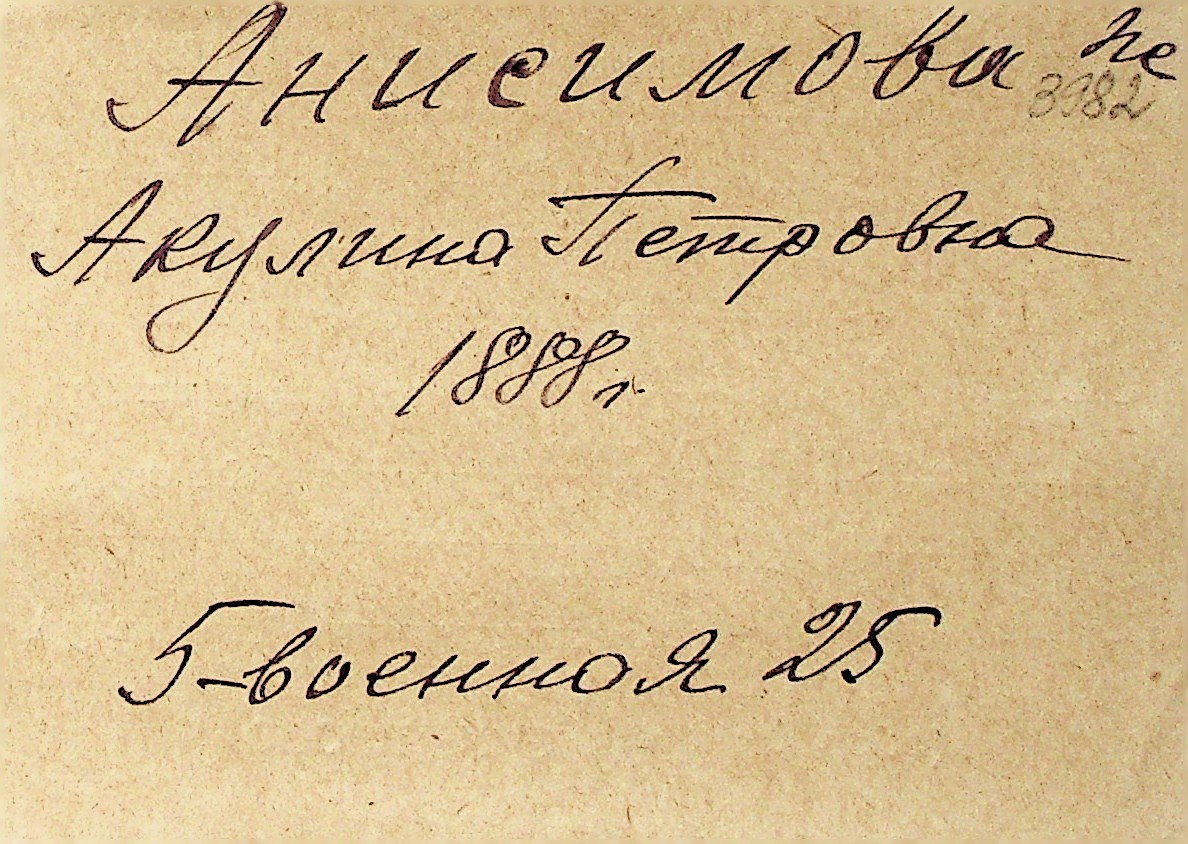 Анисимова
Акулина Петровна
1888 г
5-военная 25